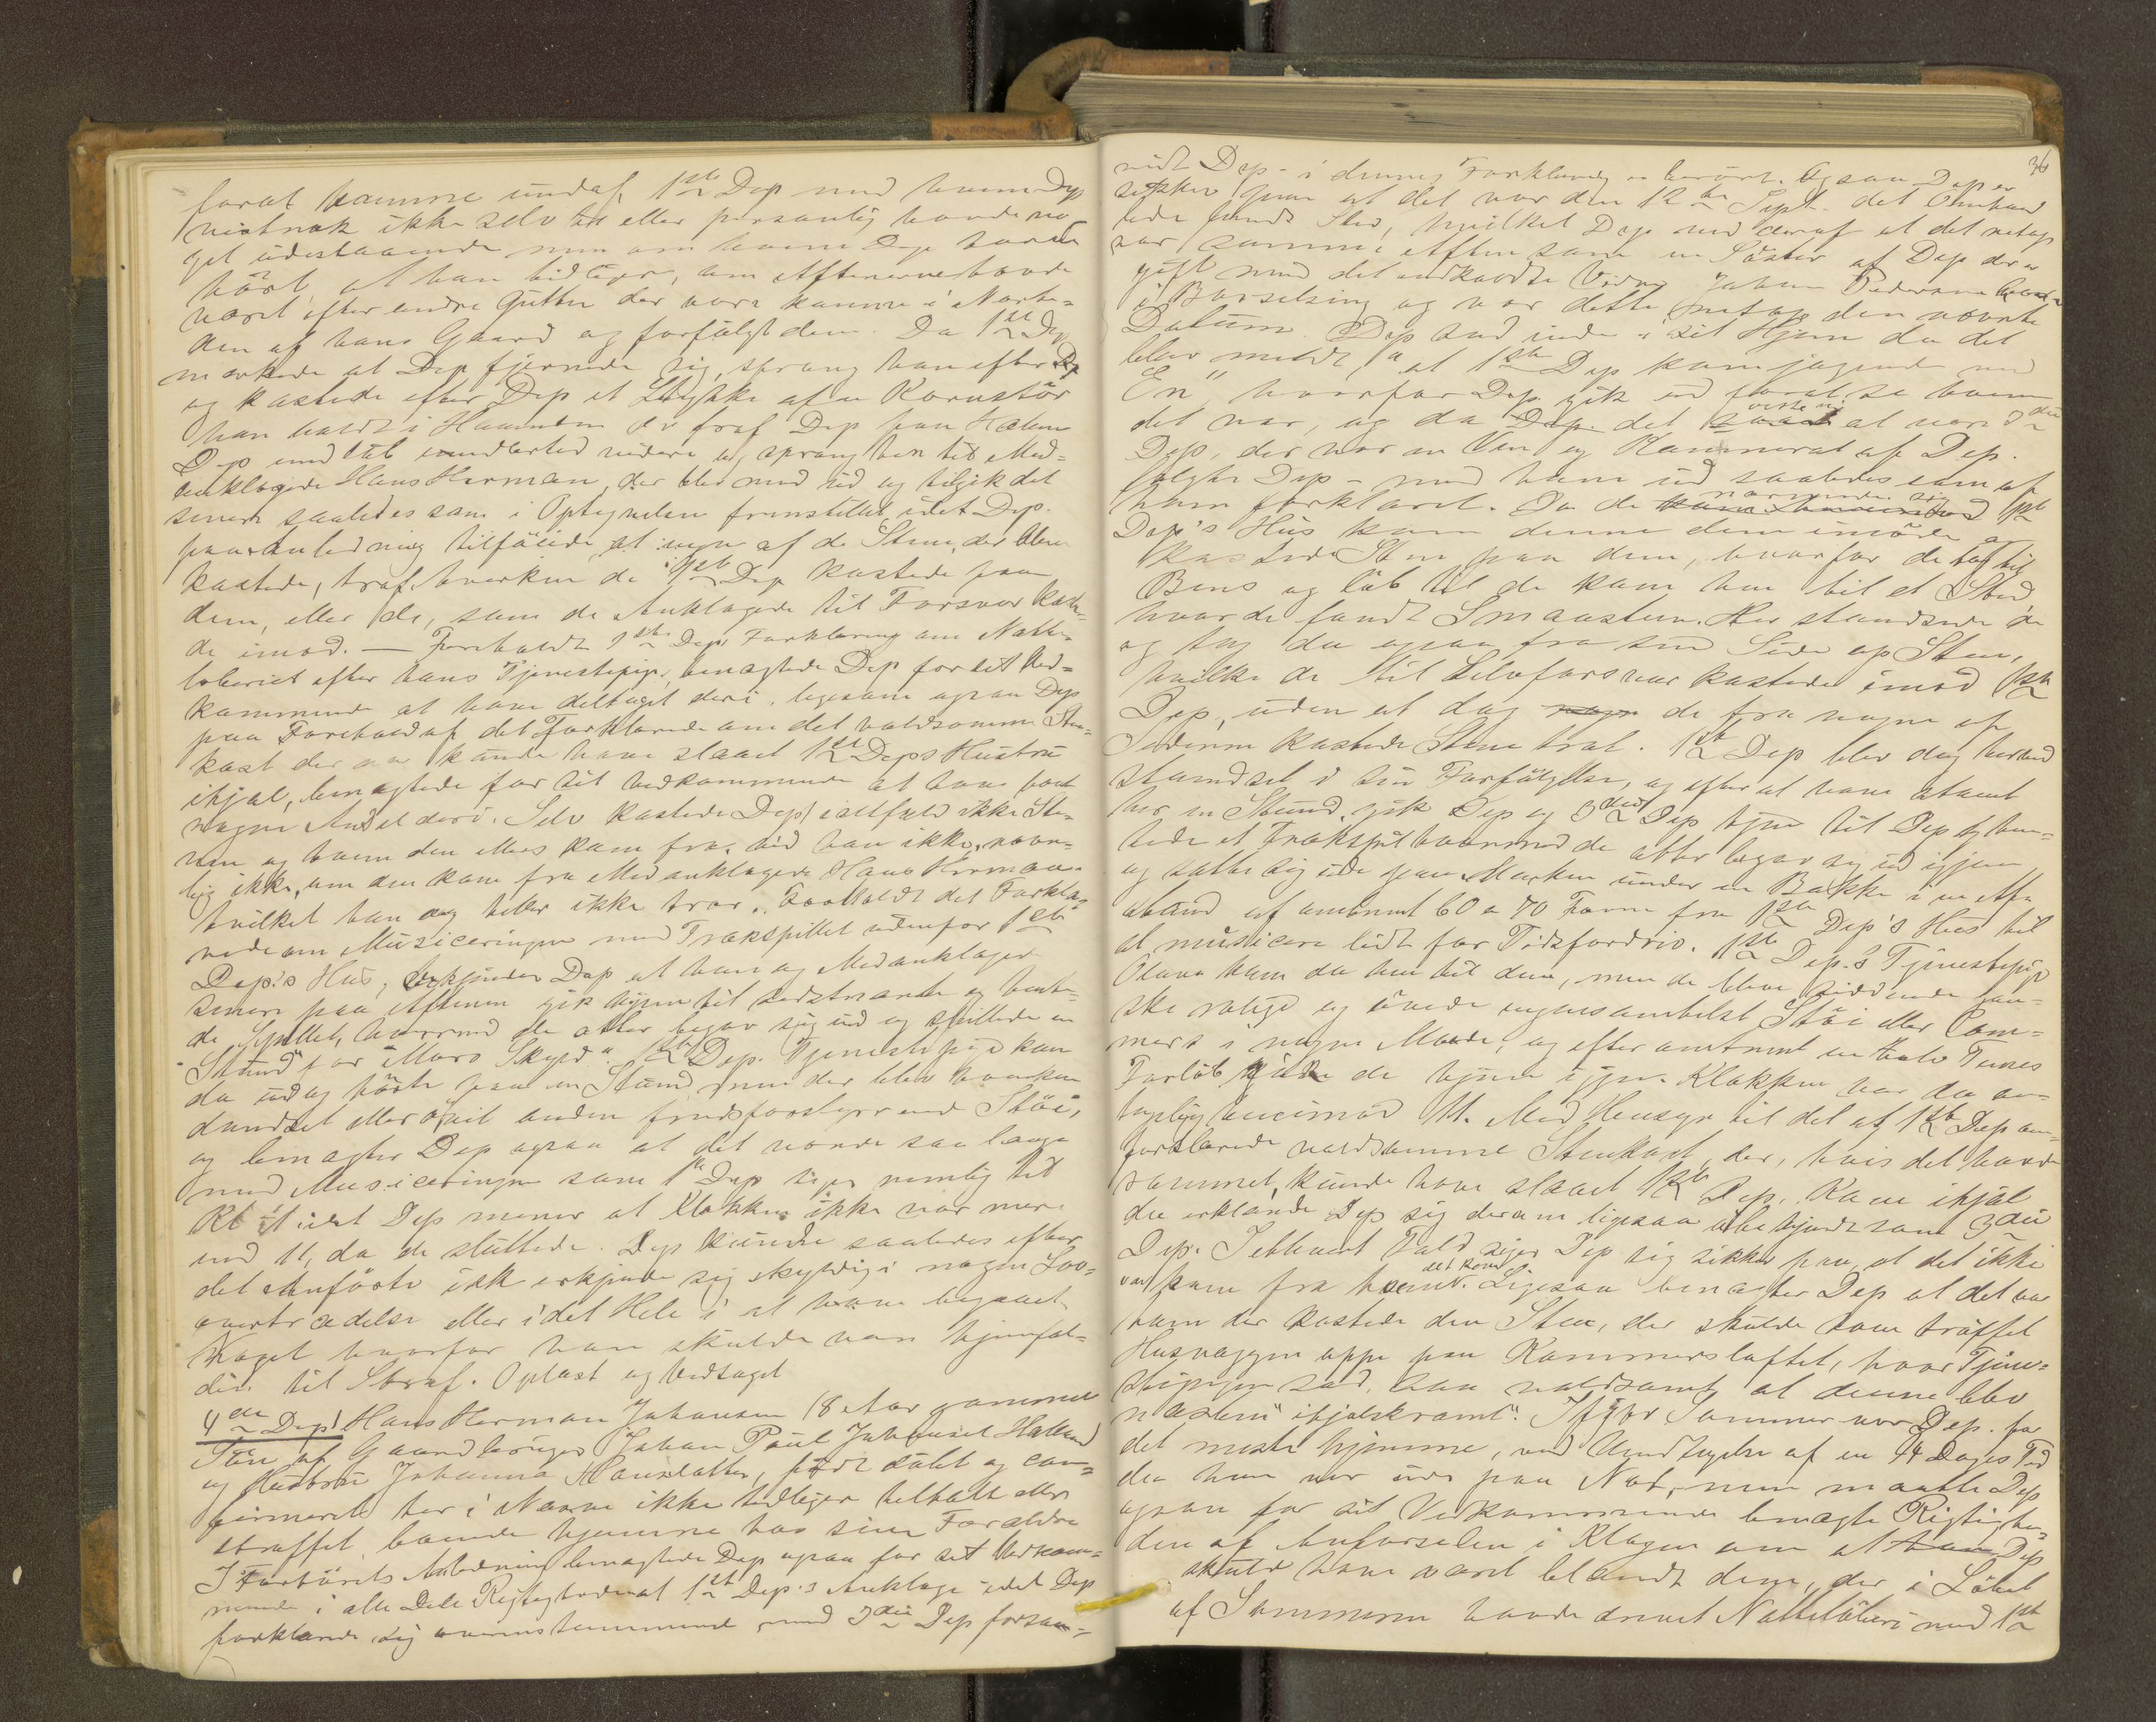 forat komme undaf 1ste Dep med hvem Dep
vistnok ikke selv har eller personlig havde no-
get udestaaende men om hvem Dep havde
hört, at han tidligere, om Aftenerne havde
været efter andre Gutter der vare komne i Nærhe-
den af hans Gaard og forfulgt dem. Da 1ste Dep
mærkede at Dep fjernede sig, sprang han efter Dep
og kastede efter Dep et Stykke af en Kornstör
han holdt i Haanden der traf Dep paa Hælen
Dep undlöb imidlertid videre og sprang hen til Med-
anklagede Hans Herman, der blev med ud og tilgik det
senere saaledes som i Optegnelsen fremstillet, idet Dep.
paa Anledning tilföiede, at ingen af de Stene, der bleve
kastede, traf hverken de 1ste Dep kastede paa
dem, eller de, som de Anklagede til Forsvar kaste-
de imod. — Foreholdt 1ste Deps Forklaring om Natte-
löberiet efter hans Tjenestepige, benægtede Dep for sit Ved-
kommende at have deltaget deri, ligesom ogsaa Dep
paa Forehold af det Forklarede om det voldsomme Sten-
kast der kunde have slaaet 1ste Deps Hustru
ihjel, benægtede for sit vedkommende at have havt
nogen Andel deri. Selv kastede Dep ialfald ikke Ste-
nen og hvem den ellers kom fra, ved han ikke, navn-
lig ikke, om den kom fra Medanklagede Hans Herman
hvilket han dog heller ikke tror. Foreholdt det Forkla-
rede om Musiceringen med Trækspillet udenfor 1ste
Dep's Hus, erkjender Dep at han og Medanklagede
senere paa Aftenen gik hjem til sidstnævnte og hente-
de Spillet, hvormed de atter begav sig ud og spillede en
Stund for "Moro Skyld". 1ste Dep. Tjenestepige kom
da ud og hörte paa en Stund, men der blev hverken
dandset eller övet anden fredsforstyrrend Stöi,
og benægter Dep ogsaa at det varede saa længe
med Musiceringen som 1ste Dep siger nemlig til
Kl idet Dep mener at Klokken ikke var mere
end 11, da de sluttede. Dep kunde saaledes efter
det Anförte ikke erkjende sig skyldig i nogen Lov-
overtrædelse eller i det Hele i at have begaaet
Noget hvorfor han skulde være hjemfal-
den til Straf. Oplæst og Vedtaget
4de Dep! Hans Herman Johansen 18 Aar gammel
Sön af Gaardbruger Johan Paul Johansen
og Hustru Johanna Hansdatter, født döbt og con-
firmeret her i ikke tidligere tiltalt eller
straffet, boende hjemme hos sine Forældre
I Forhörets Anledning benægtede Dep ogsaa for sit Vedkom-
mende i alle Dele Rigtigheden af 1ste Dep.s Anklage idet Dep
forklarede sig overensstemmende med 3die Dep forsaa-
36
vidt Dep i dennes Forklaring er berört. Ogsaa Dep er
sikker paa at det var den 12te Sept. det Omhand-
lede fandt Sted, hvilket Dep ved deraf at det netop
var samme Aften som en Söster af Dep der er
gift med det indkaldte Vidne Johan Pedersen kom
i Barselseng og var dette netop den nævnte
Datum. Dep sad inde i sit Hjem da det
blev meldt, "at 1ste Dep kom jagende med
En" hvorfor Dep gik ud forat se hvem
det var, og da Dep. det viste sig at være 3die
Dep, der var en Ven og Kammerat af Dep.
fulgte Dep med ham ud saaledes som af
ham forklaret. Da de nærmede sig 1ste
Dep's Hus kom denne dem imöde og
kastede Sten paa dem, hvorfor de tog til
Bens og löb til de kom hen til et Sted
hvor de fandt Smaasten. Her standsede de
og tog da ogsaa fra sin Side op Sten,
hvilke de til Selvforsvar kastede imod 1ste
Dep, uden at dog de fra nogen af
Siderne kastede Stene traf. 1ste Dep blev dog herved
standset i sin Forfölgelse, og efter at have staaet
her en Stund, gik Dep og 3die Dep hjem til Dep og hen-
tede et Trækspil hvormed de atter begav sig ud igjen
og satte sig ude paa Marken under en Bakke i en Af-
stand af omtrent 60 a 70 Favne fra 1ste Dep's Hus til
at musicere lidt for Tidsfordriv. 1ste Dep.s Tjenestepige
Olava kom da hen til dem, men de bleve siddende gan-
ske rolige og övede ingensomhelst Stöi eller Com-
mers i nogen Maade, og efter omtrent en halv Times
Forlöb gik de hjem igjen. Klokken var da an-
tagelig henimod 11. Med Hensyn til det af 1ste Dep om-
forklarede voldsomme Stenkast, der, hvis det havde
rammet, kunde have slaaet 1ste Dep. Kone ihjel
da erklærede Dep sig derom ligesaa ubekjendt som 3die
Dep. I ethvert Fald siger Dep sig sikker paa, at det ikke
var ham fra hvem det kom. Ligesaa benægter Dep at det var
ham der kastede den Sten, der skulde have truffet
Husvæggen oppe paa Kammersloftet, hvor Tjene-
stepigen sad, saa voldsomt at denne blev
næsten "ihjelskræmt". I ifjor Sommer var Dep. for
det meste hjemme, ved Undtagelse af en 14 Dages Tid
da han var ude paa Not, men maatte Dep
ogsaa for sit Vedkommende benægte Rigtighe-
den af Anförselen i Klagen om at Dep
skulde have været blandt dem, der i Löbet
af Sommeren havde drevet Natteløberi med 1ste